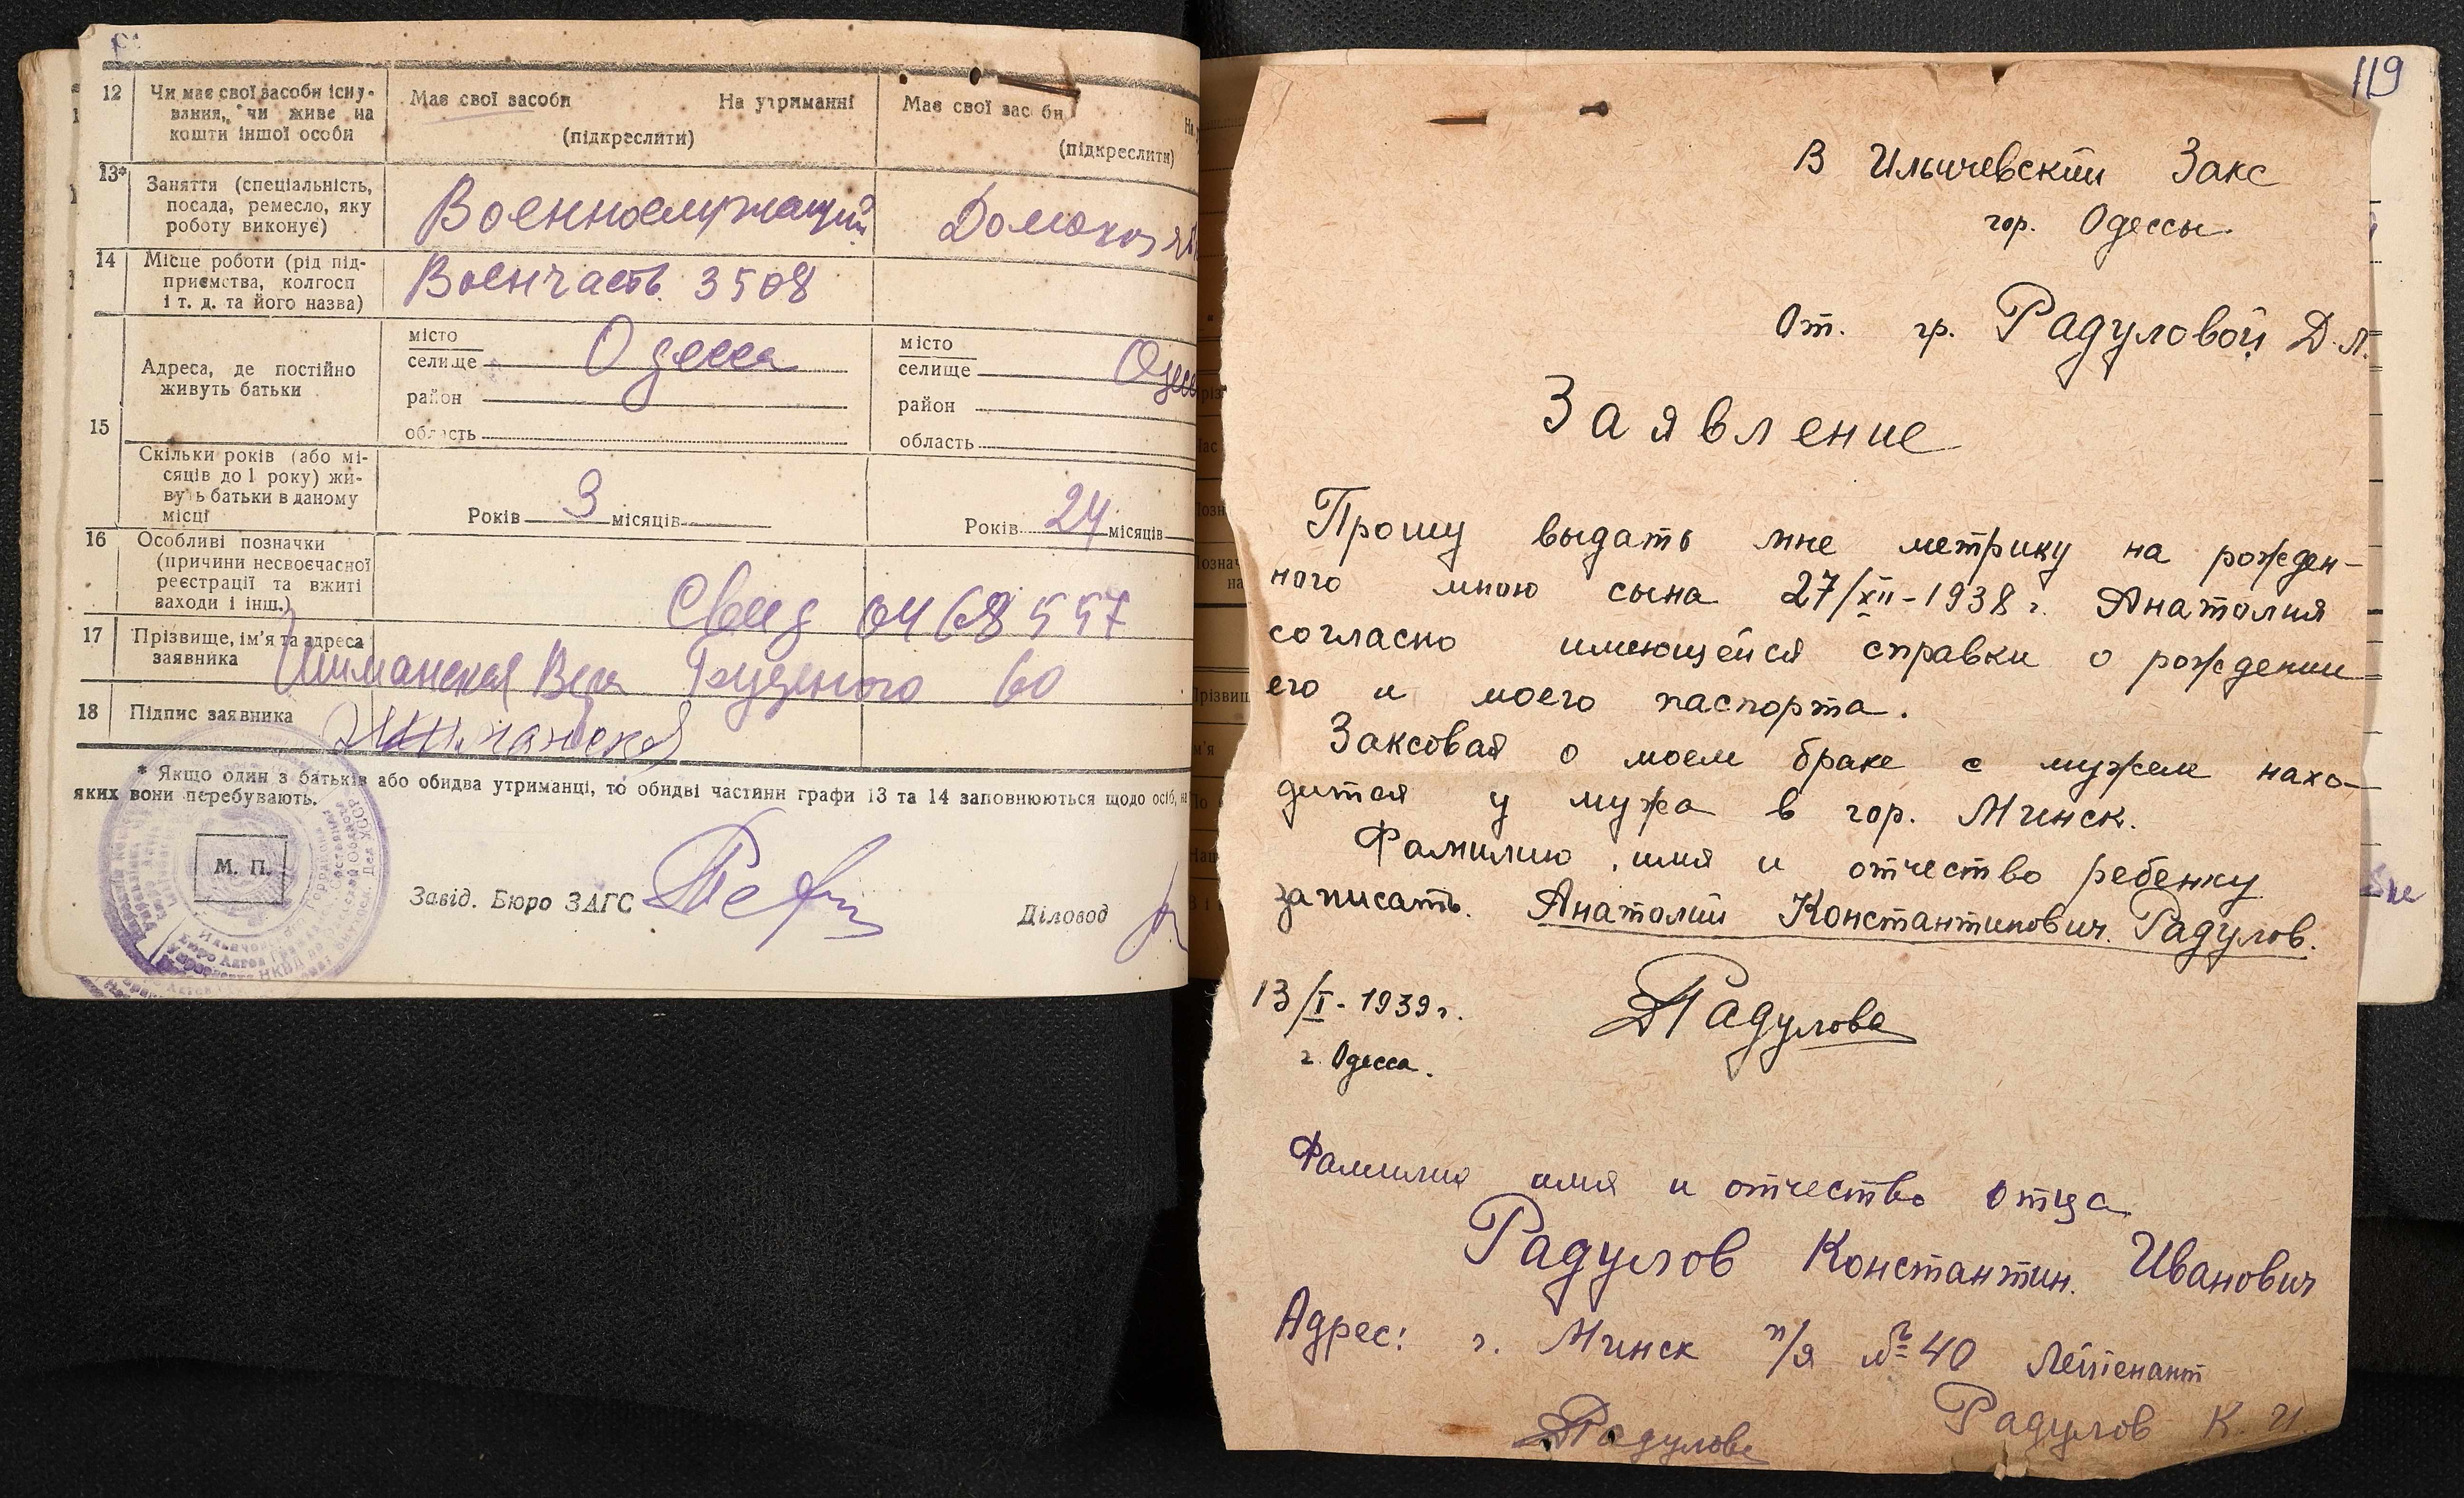 12 Чи має свої засоби існу-
вання, чи живе на
кошти іншої особи
Має свої засоби На утриманні
(підкреслити)
Має свої засоби
(підкреслити)
13* Заняття (спеціальність,
посада, ремесло, яку
роботу виконує)
Военнослужащий
Домохозяй
14 Місце роботи (рід під-
приємства, колгосп
і т. д. та його назва)
Военчасть 3508
15
Адреса, де постійно
живуть батьки
місто
селище Одесса
район
область
місто
селище Одес
район
область
Скільки років (або мі-
сяців до 1 року) жи-
вуть батьки в даному
місці
Років 3 місяців
Років 24 місяців
16 Особливі позначки
(причини несвоєчасної
реєстрації та вжиті
заходи і інш.)
Свид 0468557
17 Прізвище, ім'я та адреса
заявника
Шиманская Вера Буденого 60
18 Підпис заявника
Шиманская
* Якщо один з батьків або обидва утриманці, то обидві частини графи 13 та 14 заповнюються щодо осіб, на
яких вони перебувають.
М. П.
Завід. Бюро ЗАГС
Діловод
119
В Ильичевский Закс
гор. Одессы
От. гр. Радуловой Д. Л.
Заявление
Прошу выдать мне метрику на рожден-
ного мною сына 27/XII-1938 г. Анатолия
согласно имеющейся справки о рождении
его и моего паспорта.
Заксовая о моем браке с мужем нахо-
дится у мужа в гор. Минск.
Фамилию, имя и отчество ребенку
записать. Анатолий Константинович. Радулов.
13/I-1939 г.
Радулова
г. Одесса.
Фамилия имя и отчество отца
Радулов Константин. Иванович
Адрес: г. Минск п/я № 40 Лейтенант
Радулов К. И
Радулова